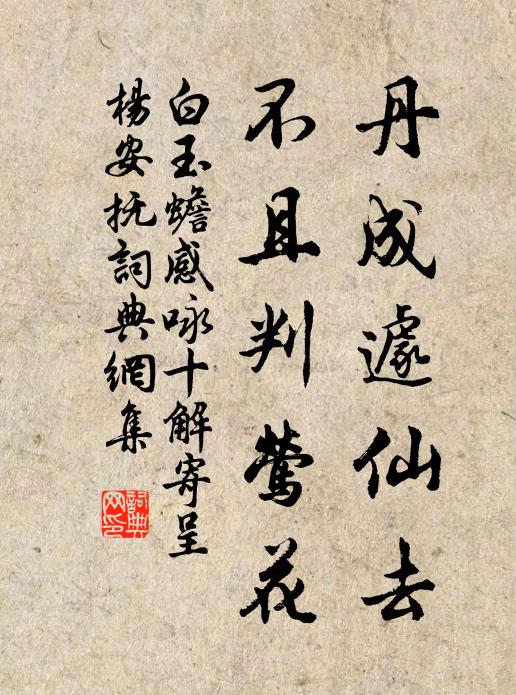 丹成遽仙去
不且判鶯花
白玉蟾感咏十解寄呈
楊安抚詞典網集
詞典网印